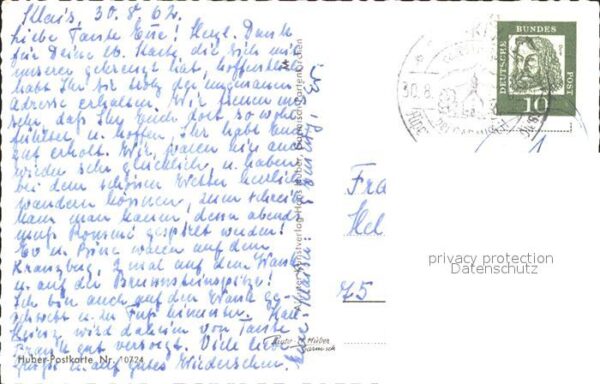 Klais, 30.8.62.
Liebe Tante Else! Herzl. Dank
für Deine lb. Karte die sich mit
unserer gekreuzt hat, hoffentlich
habt Ihr sie trotz der ungenauen
Adresse erhalten. Wir freuen uns
sehr, daß Ihr Euch dort so wohl
fühltet u. hoffen, Ihr habt Euch
gut erholt. Wir waren hier auch
wieder sehr glücklich u. haben
bei dem schönen Wetter herrlich
wandern können, zum schreiben
kam man kaum, denn abends
muß gespielt werden!
Ev u. waren auf dem
Kranzberg, 2 mal auf dem Wank
u. auf der Brunnsteinspitze!
Ich bin auch auf den Wank ge-
schwebt u. zu Fuß hinunter. Karl
Heinz wird daheim von Tante
gut versorgt. Viele liebe
Grüße u. auf gutes Wiedersehen.
Huber-Postkarte Nr. 10724
Kunstverlag Hans Huber, Garmisch-Partenkirchen
Foto-Huber
Garmisch
30.8.
DEUTSCHE BUNDESPOST
10
Fra
Hel
75
1
privacy protection
Datenschutz